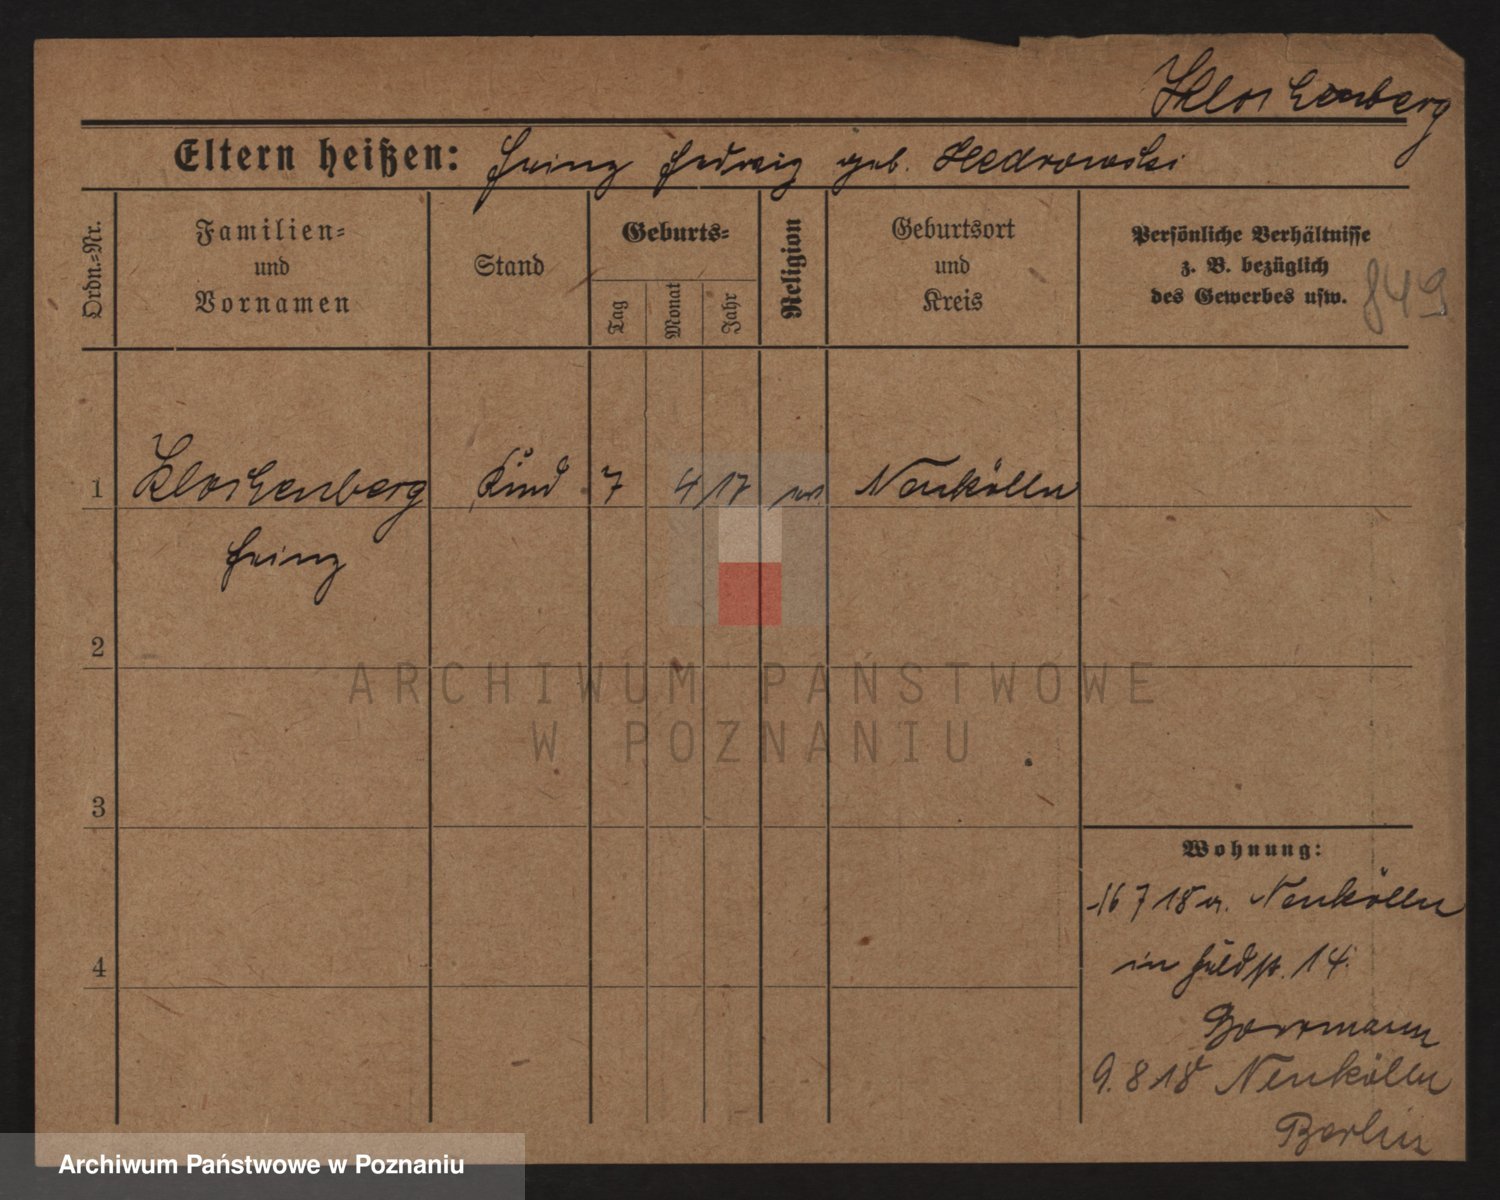 Klockenberg
Eltern heißen: Heinz Hedwig geb. Kledrowski
Ordn.-Nr.
Familien-
und
Vornamen
Stand
Geburts-
Tag
Monat
Jahr
Religion
Geburtsort
und
Kreis
Persönliche Verhältnisse
z. B. bezüglich
des Gewerbes usw.
849
1 Klockenberg Kind 7 4 17 ev Neukölln
Heinz
2
3
4
Wohnung:
16 7 18 v. Neukölln
in Feldstr. 14.
Borrmann
9. 8 18 Neukölln
Berlin
ARCHIWUM PAŃSTWOWE
W POZNANIU
Archiwum Państwowe w Poznaniu